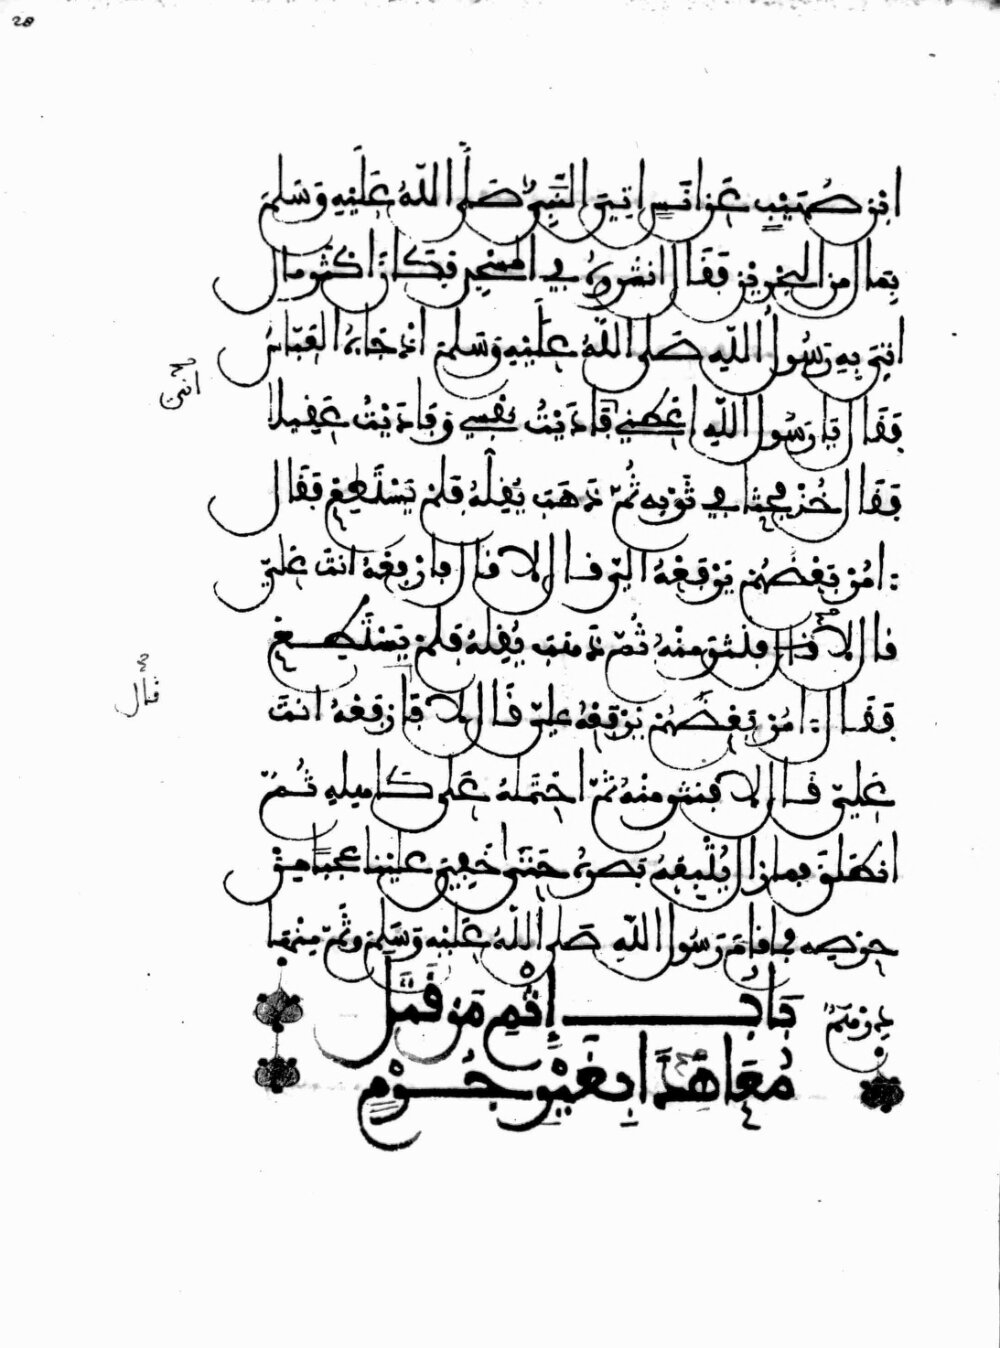 28
ابْنِ صُهَيْبٍ عَنْ أَنَسٍ أُتِيَ النَّبِيُّ صَلَّى اللَّهُ عَلَيْهِ وَسَلَّمَ
بِمَالٍ مِنَ الْبَحْرَيْنِ فَقَالَ انْثُرُوهُ فِي الْمَسْجِدِ فَكَانَ أَكْثَرَ مَالٍ
أُتِيَ بِهِ رَسُولُ اللَّهِ صَلَّى اللَّهُ عَلَيْهِ وَسَلَّمَ إِذْ جَاءَهُ الْعَبَّاسُ
انى
فَقَالَ يَا رَسُولَ اللَّهِ أَعْطِنِي فَادَيْتُ نَفْسِي وَفَادَيْتُ عَقِيلًا
فَقَالَ خُذْ فَحَثَا فِي ثَوْبِهِ ثُمَّ ذَهَبَ يُقِلُّهُ فَلَمْ يَسْتَطِعْ فَقَالَ
أمُرْ بَعْضَهُمْ يَرْفَعْهُ إِلَيَّ قَالَ لَا قَالَ فَارْفَعْهُ أَنْتَ عَلَيَّ
قَالَ لَا قال فَنَثَرَ مِنْهُ ثُمَّ ذَهَبَ يُقِلُّهُ فَلَمْ يَسْتَطِعْ
قال
فَقَالَ أمُرْ بَعْضَهُمْ يَرْفَعْهُ عَلَيَّ قَالَ لَا قَالَ فَارْفَعْهُ أَنْتَ
عَلَيَّ قَالَ لَا فَنَثَرَ مِنْهُ ثُمَّ احْتَمَلَهُ عَلَى كَاهِلِهِ ثُمَّ
انْطَلَقَ فَمَا زَالَ يُتْبِعُهُ بَصَرَهُ حَتَّى خَفِيَ عَلَيْنَا عَجَبًا مِنْ
حِرْصِهِ فَمَا قَامَ رَسُولُ اللَّهِ صَلَّى اللَّهُ عَلَيْهِ وَسَلَّمَ وَثَمَّ مِنْهَا
دِرْهَمٌ
بَابُ إِثْمِ مَنْ قَتَلَ
مُعَاهَدًا بِغَيْرِ جُرْمٍ